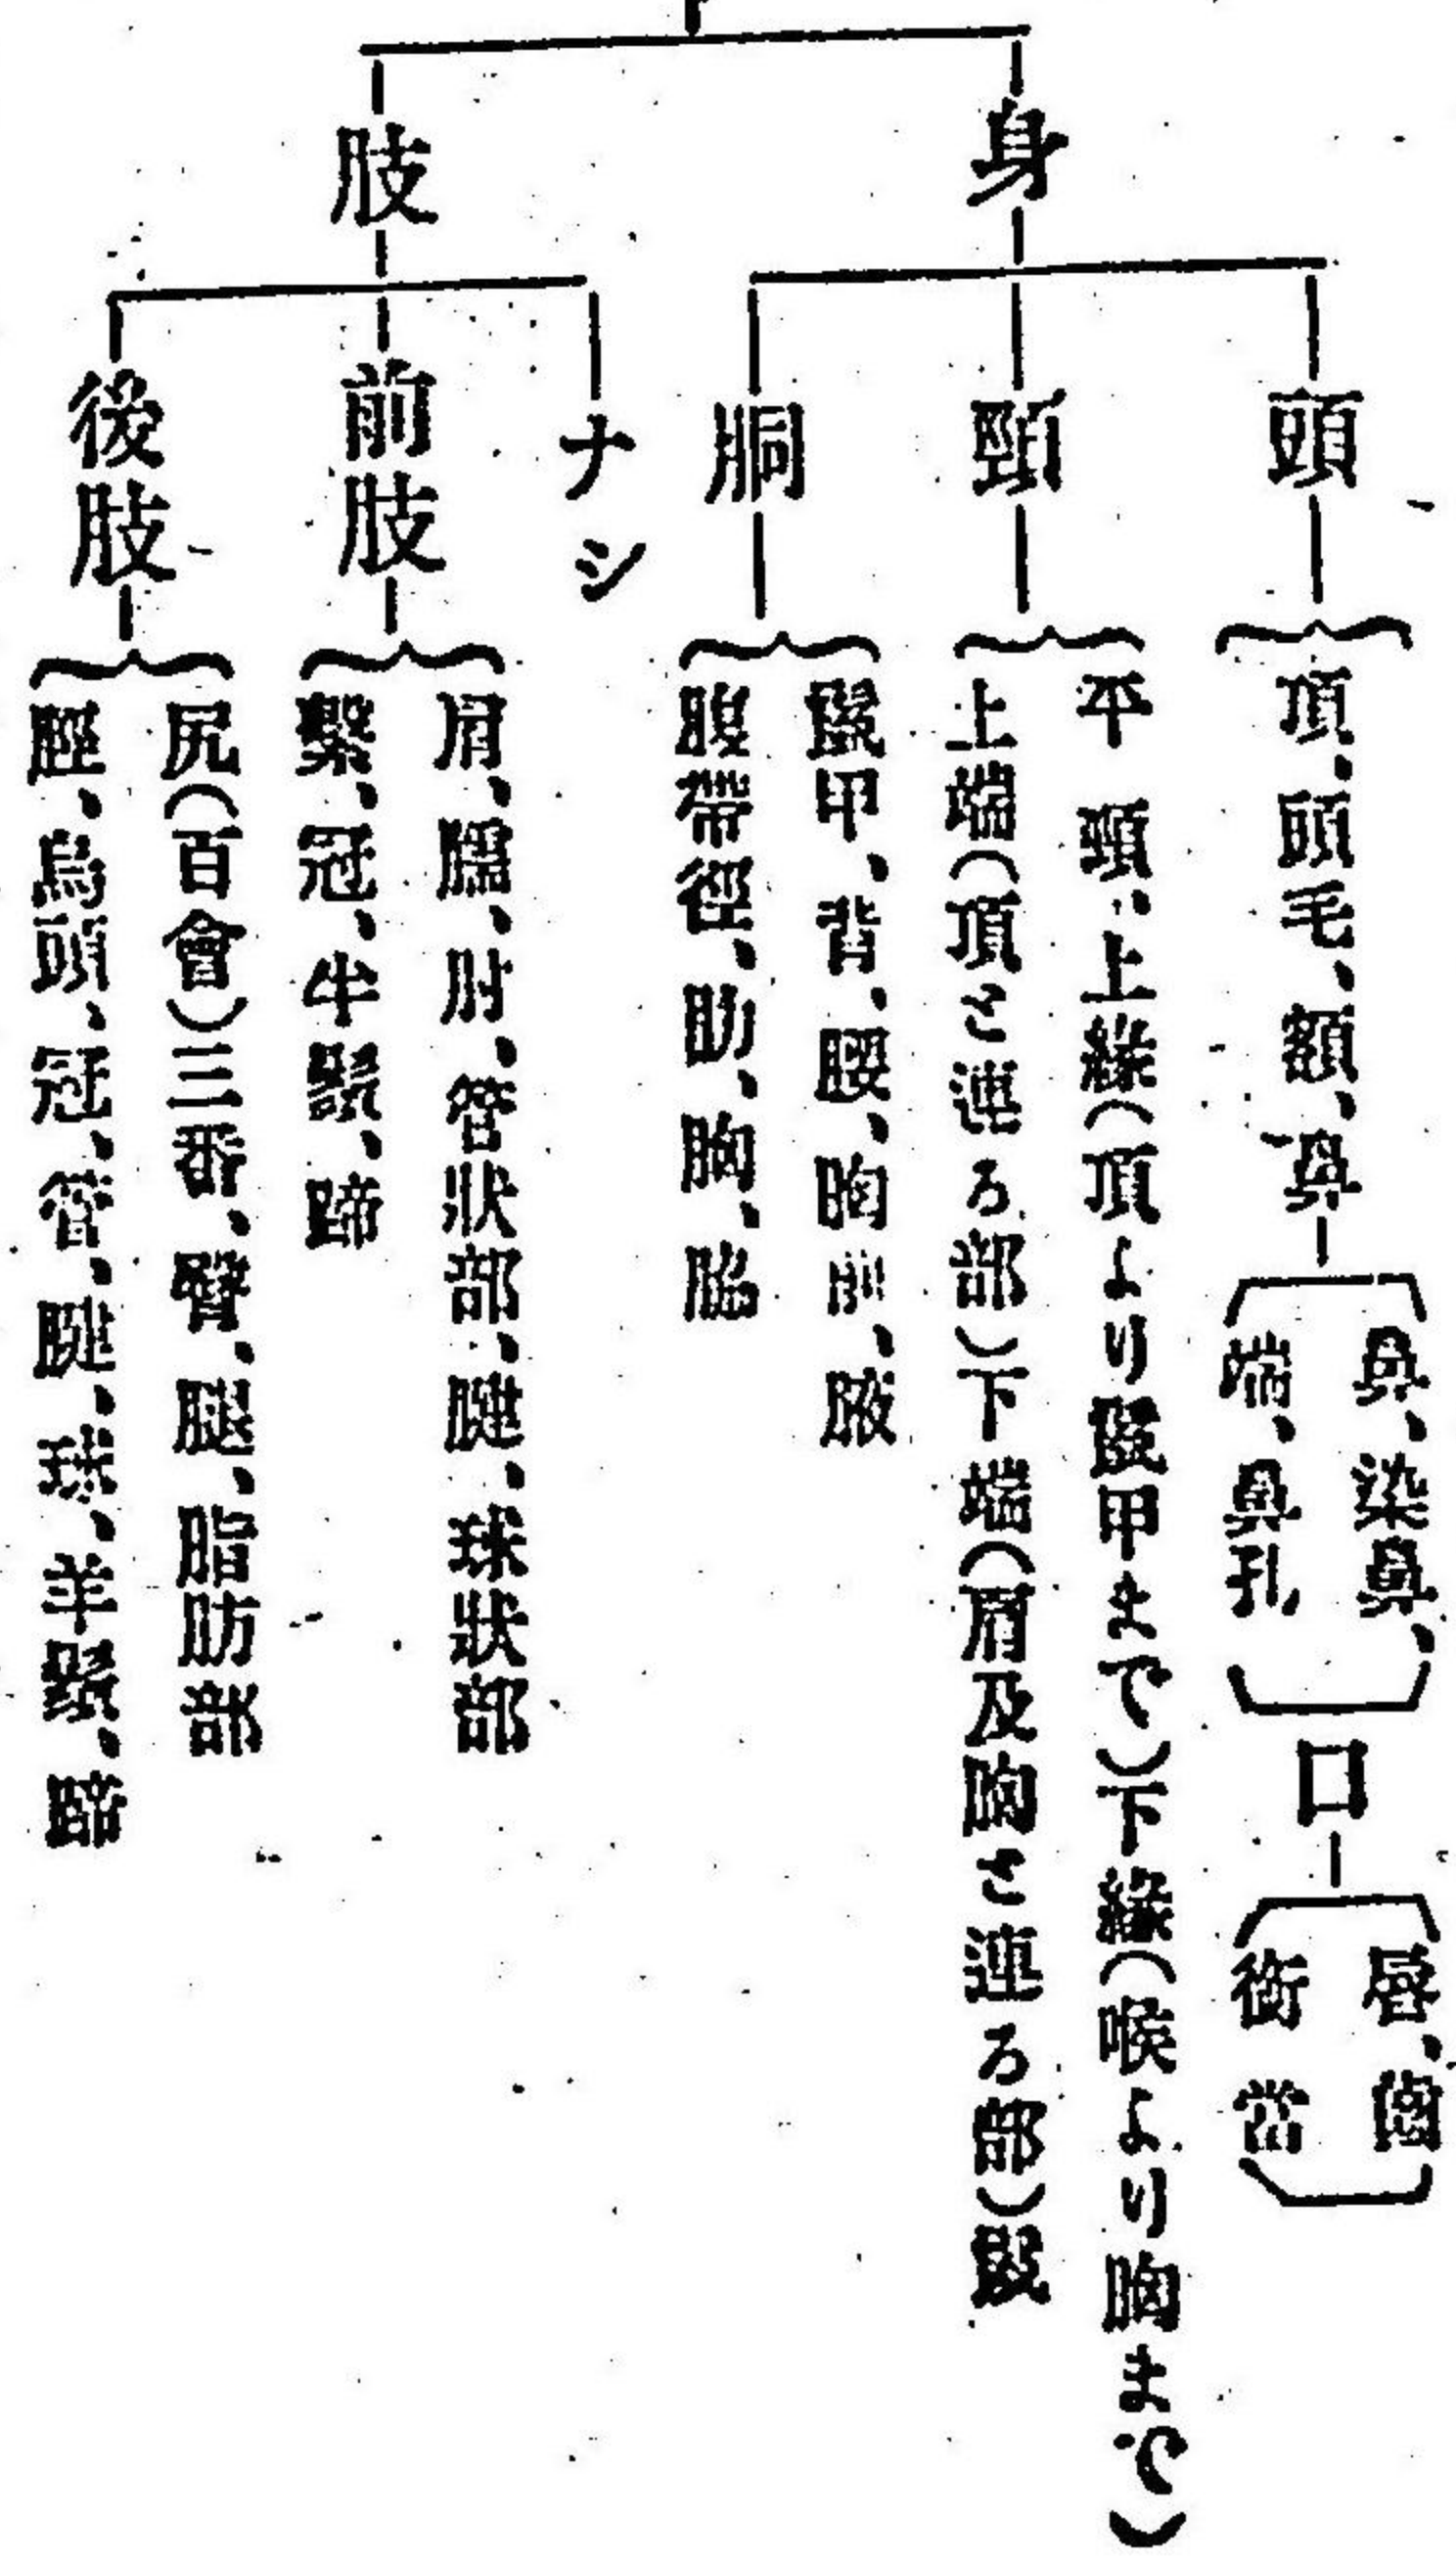 身
頭
頂、頭毛、額、鼻
鼻、染鼻、
端、鼻孔
口
唇、齒
銜當
頸
平頸、上緣(頂より鬐甲まで)下緣(喉より胸まで)
上端(頂と連る部)下端(肩及胸と連る部)鬣
胴
鬐甲、背、腰、胸前、腋
腹帶徑、肋、胸、脇
肢
ナシ
前肢
肩、臑、肘、管狀部、腱、球狀部
繫、冠、牛鬃、蹄
後肢
尻(百會)三番、臀、腿、脂肪部
脛、烏頭、冠、管、腱、球、羊鬃、蹄